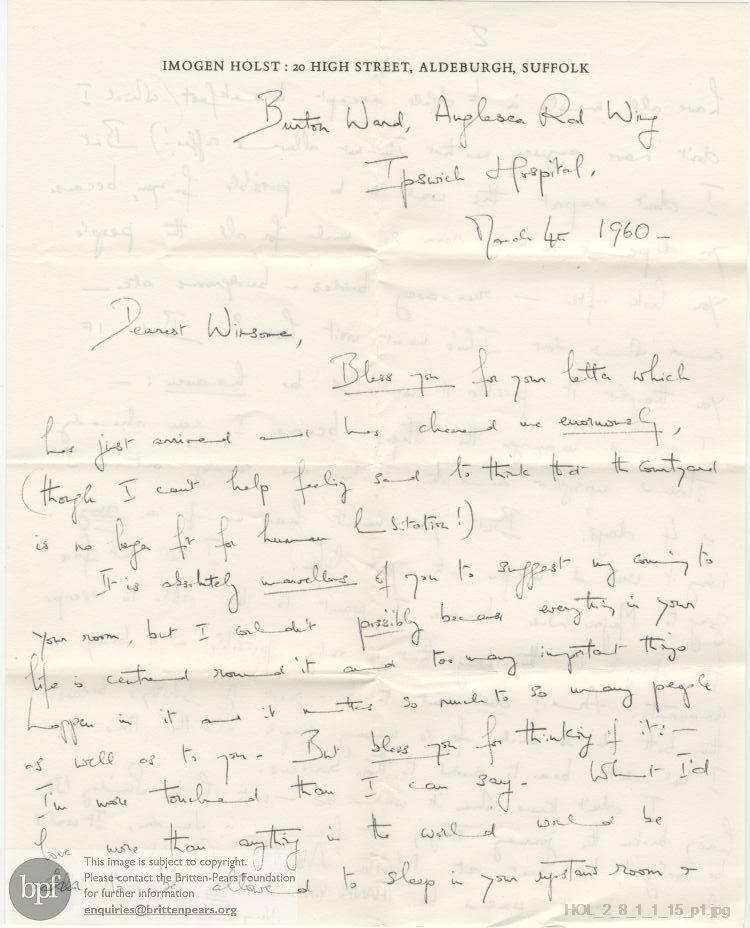 IMOGEN HOLST : 20 HIGH STREET, ALDEBURGH, SUFFOLK
Burton Ward, Anglesea Rd Wing
Ipswich Hospital,
March 4th 1960 –
Dearest Winsome,
Bless you for your letter which
has just arrived and has cheered me enormously,
(though I can't help feeling sad to think that the Courtyard
is no longer fit for human habitation!)
It is absolutely marvellous of you to suggest my coming to
your room, but I couldn't possibly because everything in your
life is centred round it and too many important things
happen in it and it matters so much to so many people
as well as to you – But bless you for thinking of it: –
I'm more touched than I can say – What I'd
love more than anything in the world would be
to be allowed to sleep in your upstairs room &
bpf
This image is subject to copyright.
Please contact the Britten-Pears Foundation
for further information
enquiries@brittenpears.org
HOL_2_8_1_1_15_p1.jpg